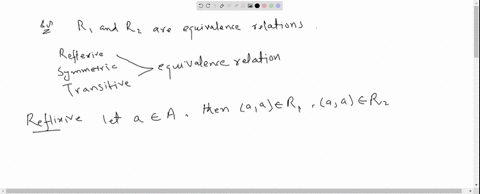 Sol R₁ and R₂ are equivalence relations.
Reflexive
Symmetric
Transitive
equivalence relation
Reflixive let a ∈ A, then (a,a) ∈ R₁, (a,a) ∈ R₂